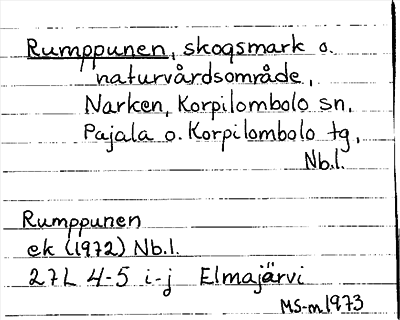 Rumppunen, skogsmark o.
naturvårdsområde,
Narken, Korpilombolo sn,
Pajala o. Korpilombolo tg,
Nb.l.
Rumppunen
ek (1972) Nb.l.
27L 4-5 i-j Elmajärvi
MS-m 1973